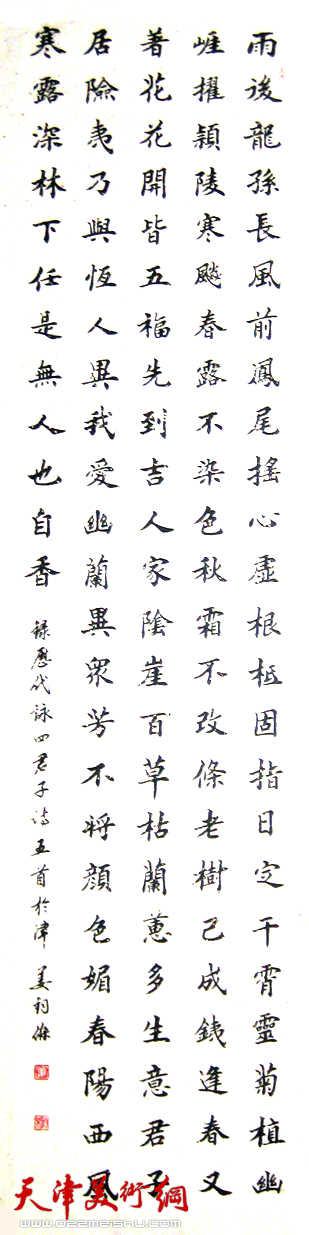 雨後龍孫長風前鳳尾搖心虛根柢固指日定干霄靈菊植幽
崕擢穎陵寒飈春露不染色秋霜不改條老樹已成銕逢春又
著花花開皆五福先到吉人家陰崖百草枯蘭蕙多生意君子
居險夷乃與恆人異我愛幽蘭異眾芳不將顏色媚春陽西風
寒露深林下任是無人也自香
錄歷代詠四君子詩五首於津
天津美術網
www.022meishu.com